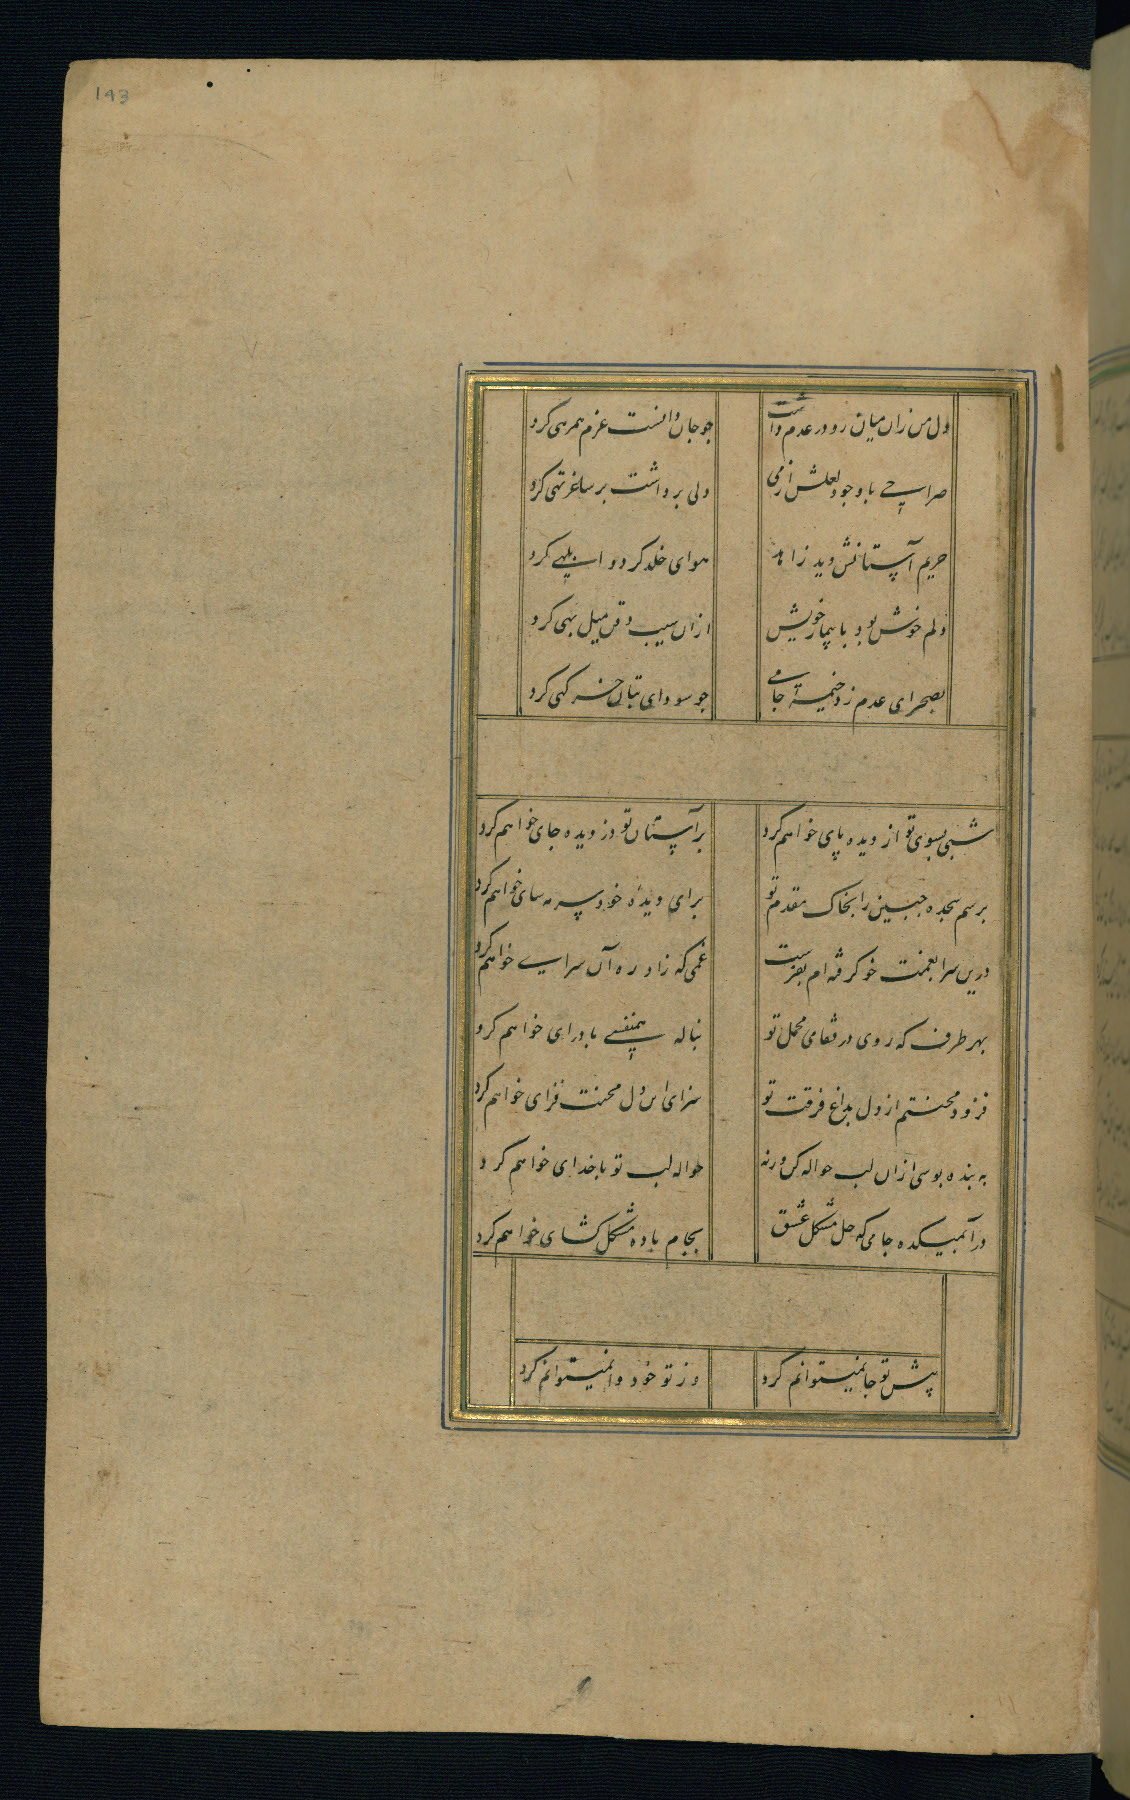 193
دل من زان میان رو در عدم داشت چو جان دانست عزم همرهی کرد
صراحی با وجود لعلش از می ولی برداشت بر ساغر تهی کرد
حریم آستانش دید زاهد هوای خلد کرد و ابلهی کرد
دلم خوش بود با بیمار خویش ازان سیب ذقن میل بهی کرد
بصحرای عدم زد خیمه جامی چو سودای بتان خرگهی کرد
شبی بسوی تو از دیده پای خواهم کرد بر آستان تو دزدیده جای خواهم کرد
برسم سجده جبین را بخاک مقدم تو برای دیدهٔ خود سرمه سای خواهم کرد
درین سرا بغمت خو گرفته ام بفرست غمی که زاد ره آن سرای خواهم کرد
بهر طرف که روی در قفای محمل تو بناله همنفسی با درای خواهم کرد
فزود محنتم از دل بداغ فرقت تو سزای این دل محنت فزای خواهم کرد
به بنده بوسی ازان لب حواله کن ورنه حواله لب تو با خدای خواهم کرد
درآ بمیکده جامی که حل مشکل عشق بجام باده مشکل کشای خواهم کرد
پیش تو جا نمیتوانم کرد وز تو خود وا نمیتوانم کرد